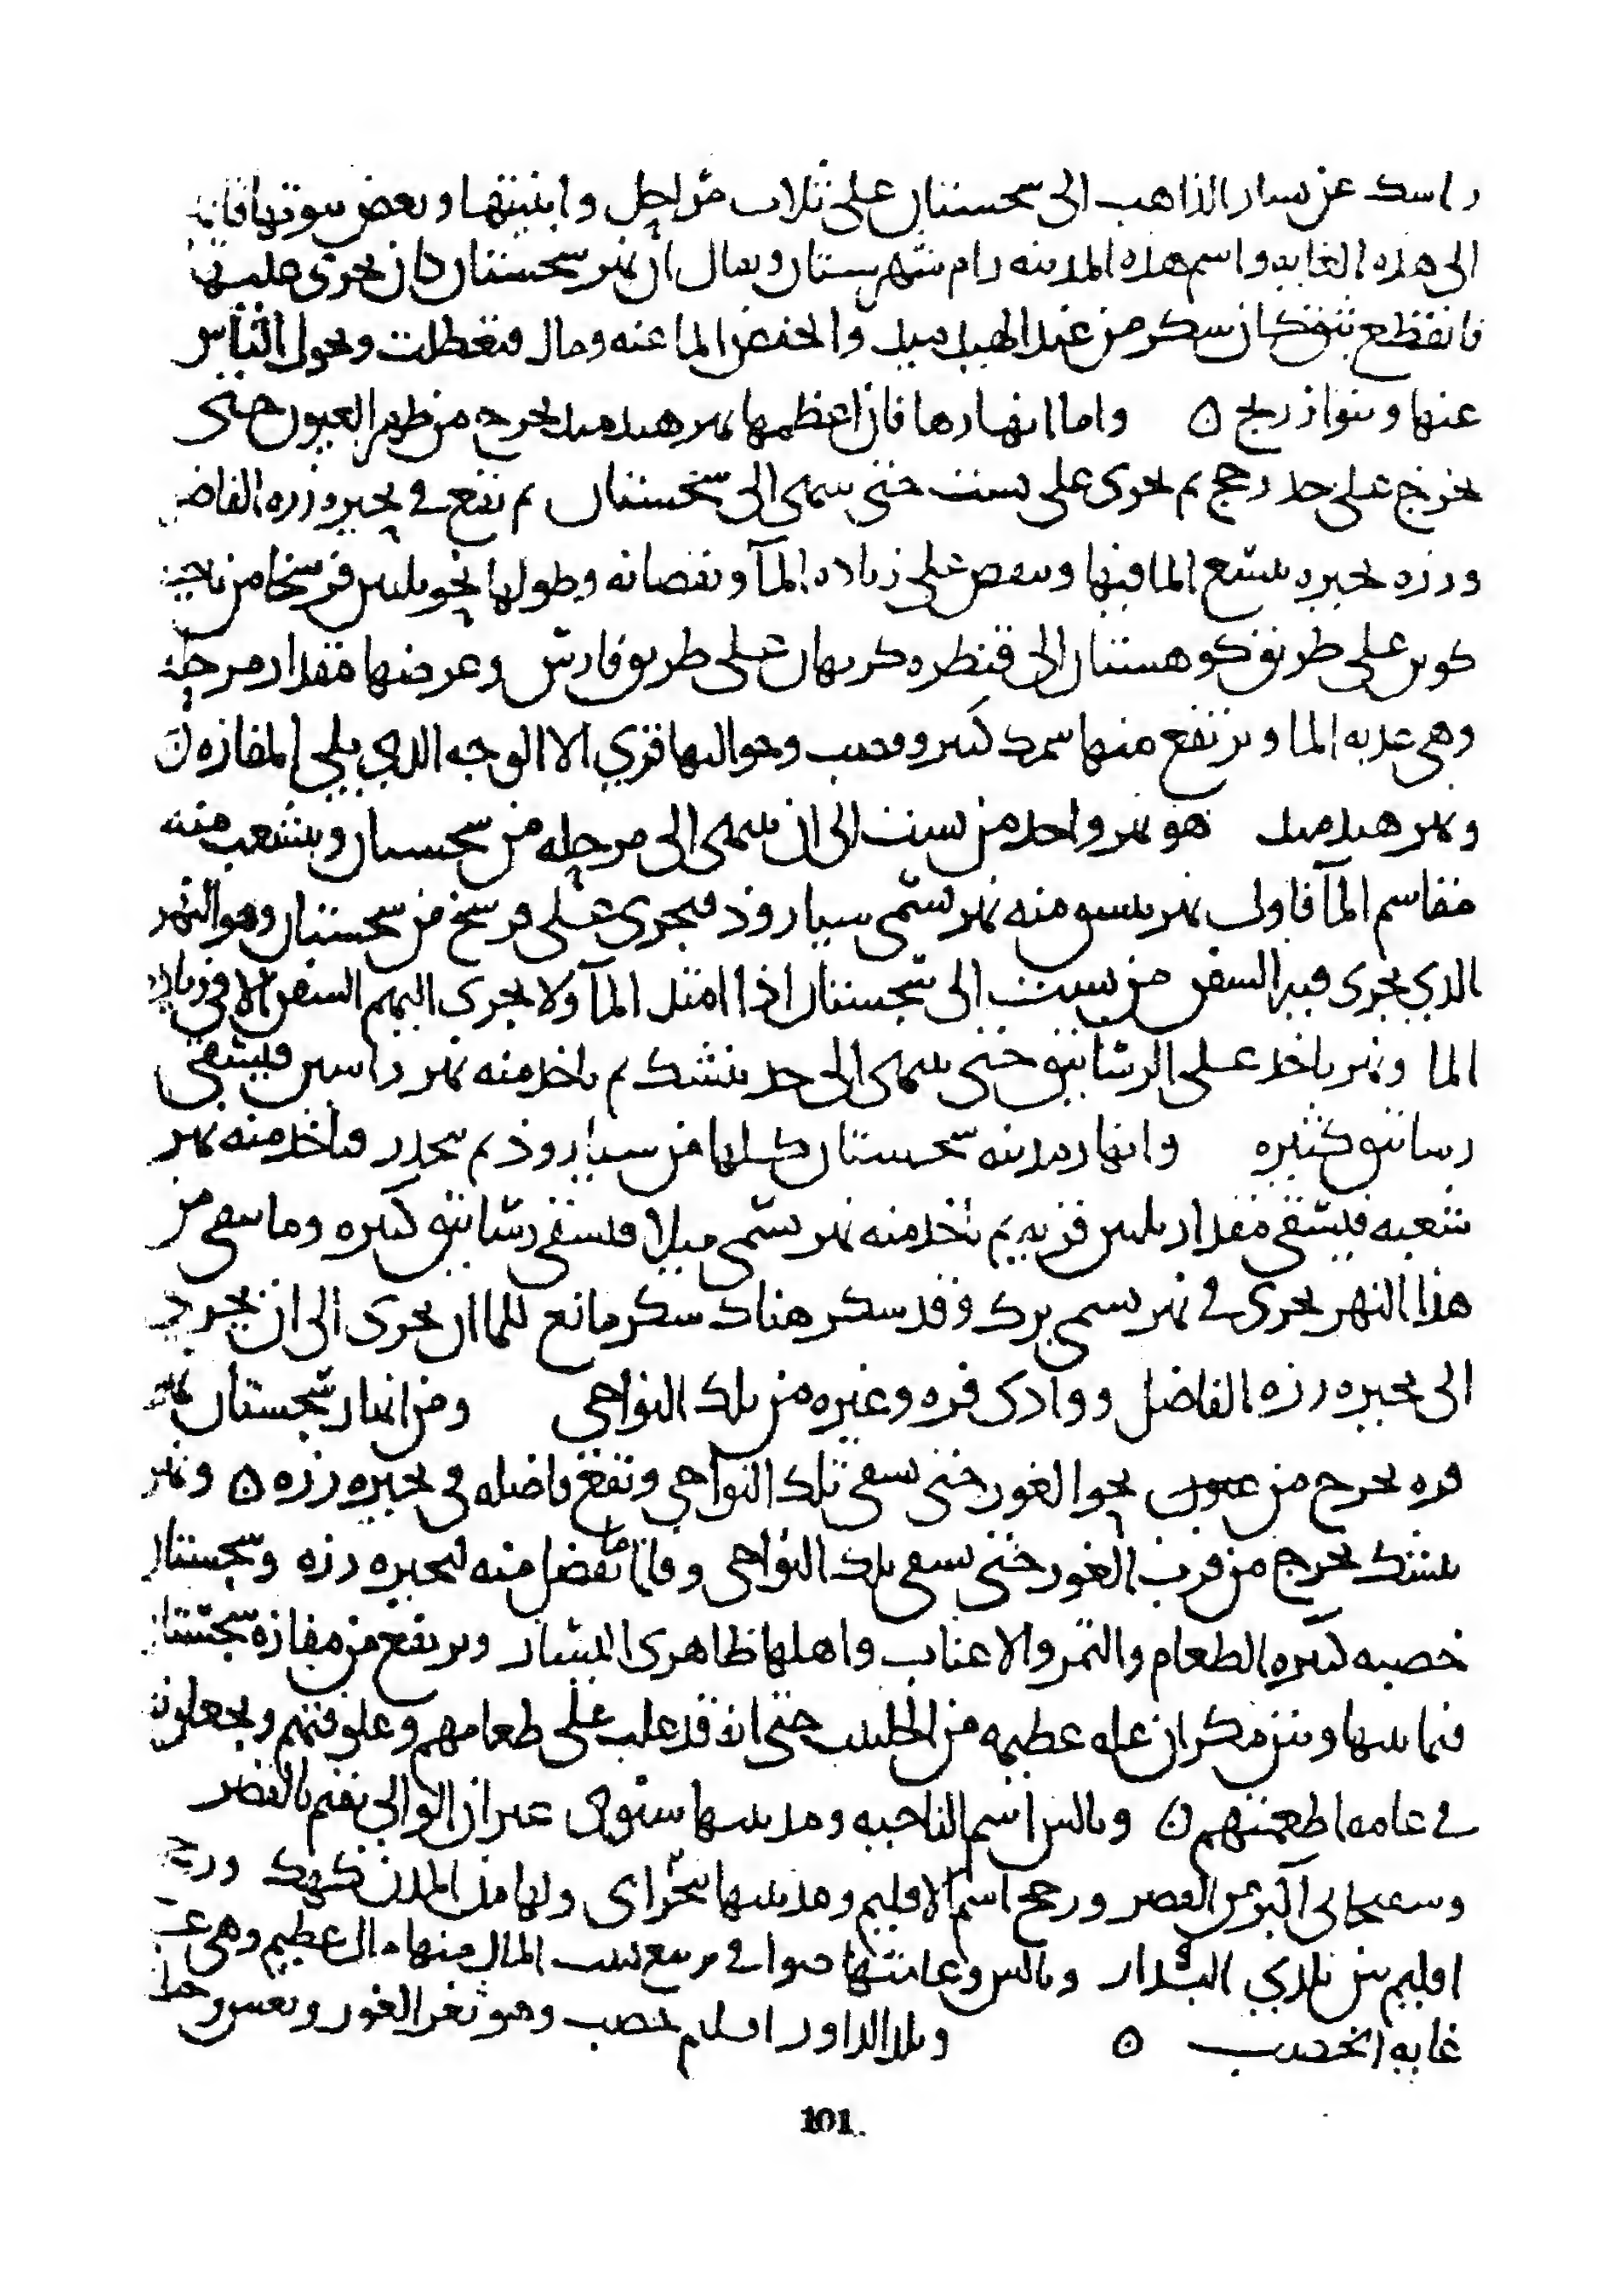 راسك عن يسار الذاهب الى سجستان على ثلاث مراحل وابنيتها وبعض بيوتها قايمة
الى هذه الغايه واسم هذه المدينه رام شهرستان ويقال ان نهر سجستان كان يجرى عليها
فانقطع بثق كان سكر من عند الهيدميد وانخفض الما عنه ومال فتعطلت وتحول الناس
عنها وبنوا زرنج ه واما انهارها فان اعظمها نهر هيدميد يخرج من ظهر الغور حتى
يخرج على حد رخج ثم يجرى على بست حتى ينتهى الى سجستان ثم يقع في بحيره زره الفاضل
وزره بحيره يتسع الما فيها وينقص على زياده المآ ونقصانه وطولها نحو ثلثين فرسخا من ناحية
كوين على طريق كوهستان الى قنطره كرمان على طريق فارس وعرضها مقدار مرحلة
وهى عذبه الما ويرتفع منها سمك كثير وقصب وحواليها قري الا الوجه الذي يلي المفازه ه
ونهر هيدميد هو نهر واحد من بست الى ان ينتهى الى مرحله من سجستان ويتشعب منه
مقاسم المآ فاول نهر ينشق منه نهر يسمى سيارود فيجرى على فرسخ من سجستان وهو النهر
الذي يجرى فيه السفن من بست الى سجستان اذا امتد المآ ولا يجرى اليهم السفن الا في زياده
الما ونهر ياخذ على الرساتيق حتى ينتهى الى حد بشك ثم ياخذ منه نهر فيسقى
رساتيق كثيره وانهار مدينه سجستان كلها من سيارود ثم ينحدر فياخذ منه نهر
شعبه فيسقى مقدار ثلثين قريه ثم ياخذ منه نهر يسمى ميلا فيسقى رساتيق كثيره وما يبقى من
هذا النهر يجرى في نهر يسمى برك وقد سكر هناك سكر مانع للما ان يجرى الى ان يجرى
الى بحيره زره الفاضل ووادى فره وغيره من تلك النواحي ومن انهار سجستان نهر
فره يخرج من نحو الغور حتى يسقى تلك النواحي وتقع فاضله في بحيره زره ه ونهر
بشك يخرج من قرب الغور حتى يسقى تلك النواحي وقل ما يفضل منه لبحيره زره وسجستان
خصبه كثيره الطعام والتمر والاعناب واهلها ظاهرى اليسار ويرتفع من مفازة سجستان
فيما بينها وبين مكران غله عظيمه من الحلتيت حتى انه قد غلب على طعامهم ويجعلونه
في عامه اطعمتهم ه وبالس اسم الناحيه ومدينتها سيوى غير ان الوالي يقيم بالقصر
وسفنجاى اكبر من القصر ورخج اسم الاقليم ومدينتها بنجواى ولها من المدن كهك ورخج
اقليم بين بلدي الداور وبالس وعامتها صوافى يرتفع لبيت المال منها مال عظيم وهى على
غايه الخصب ه وبلد الداور اقليم خصب وهو ثغر الغور
101